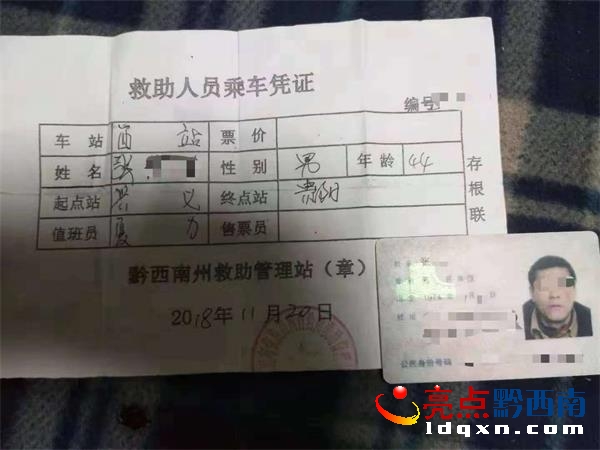 救助人员乘车凭证
编号
车站 西站 票价
姓名 张 性别 男 年龄 44
起点站 兴义 终点站 贵阳
值班员 夏力 售票员
存根联
黔西南州救助管理站（章）
2018年11月20日
张
公民身份号码
亮点黔西南
ldqxn.com